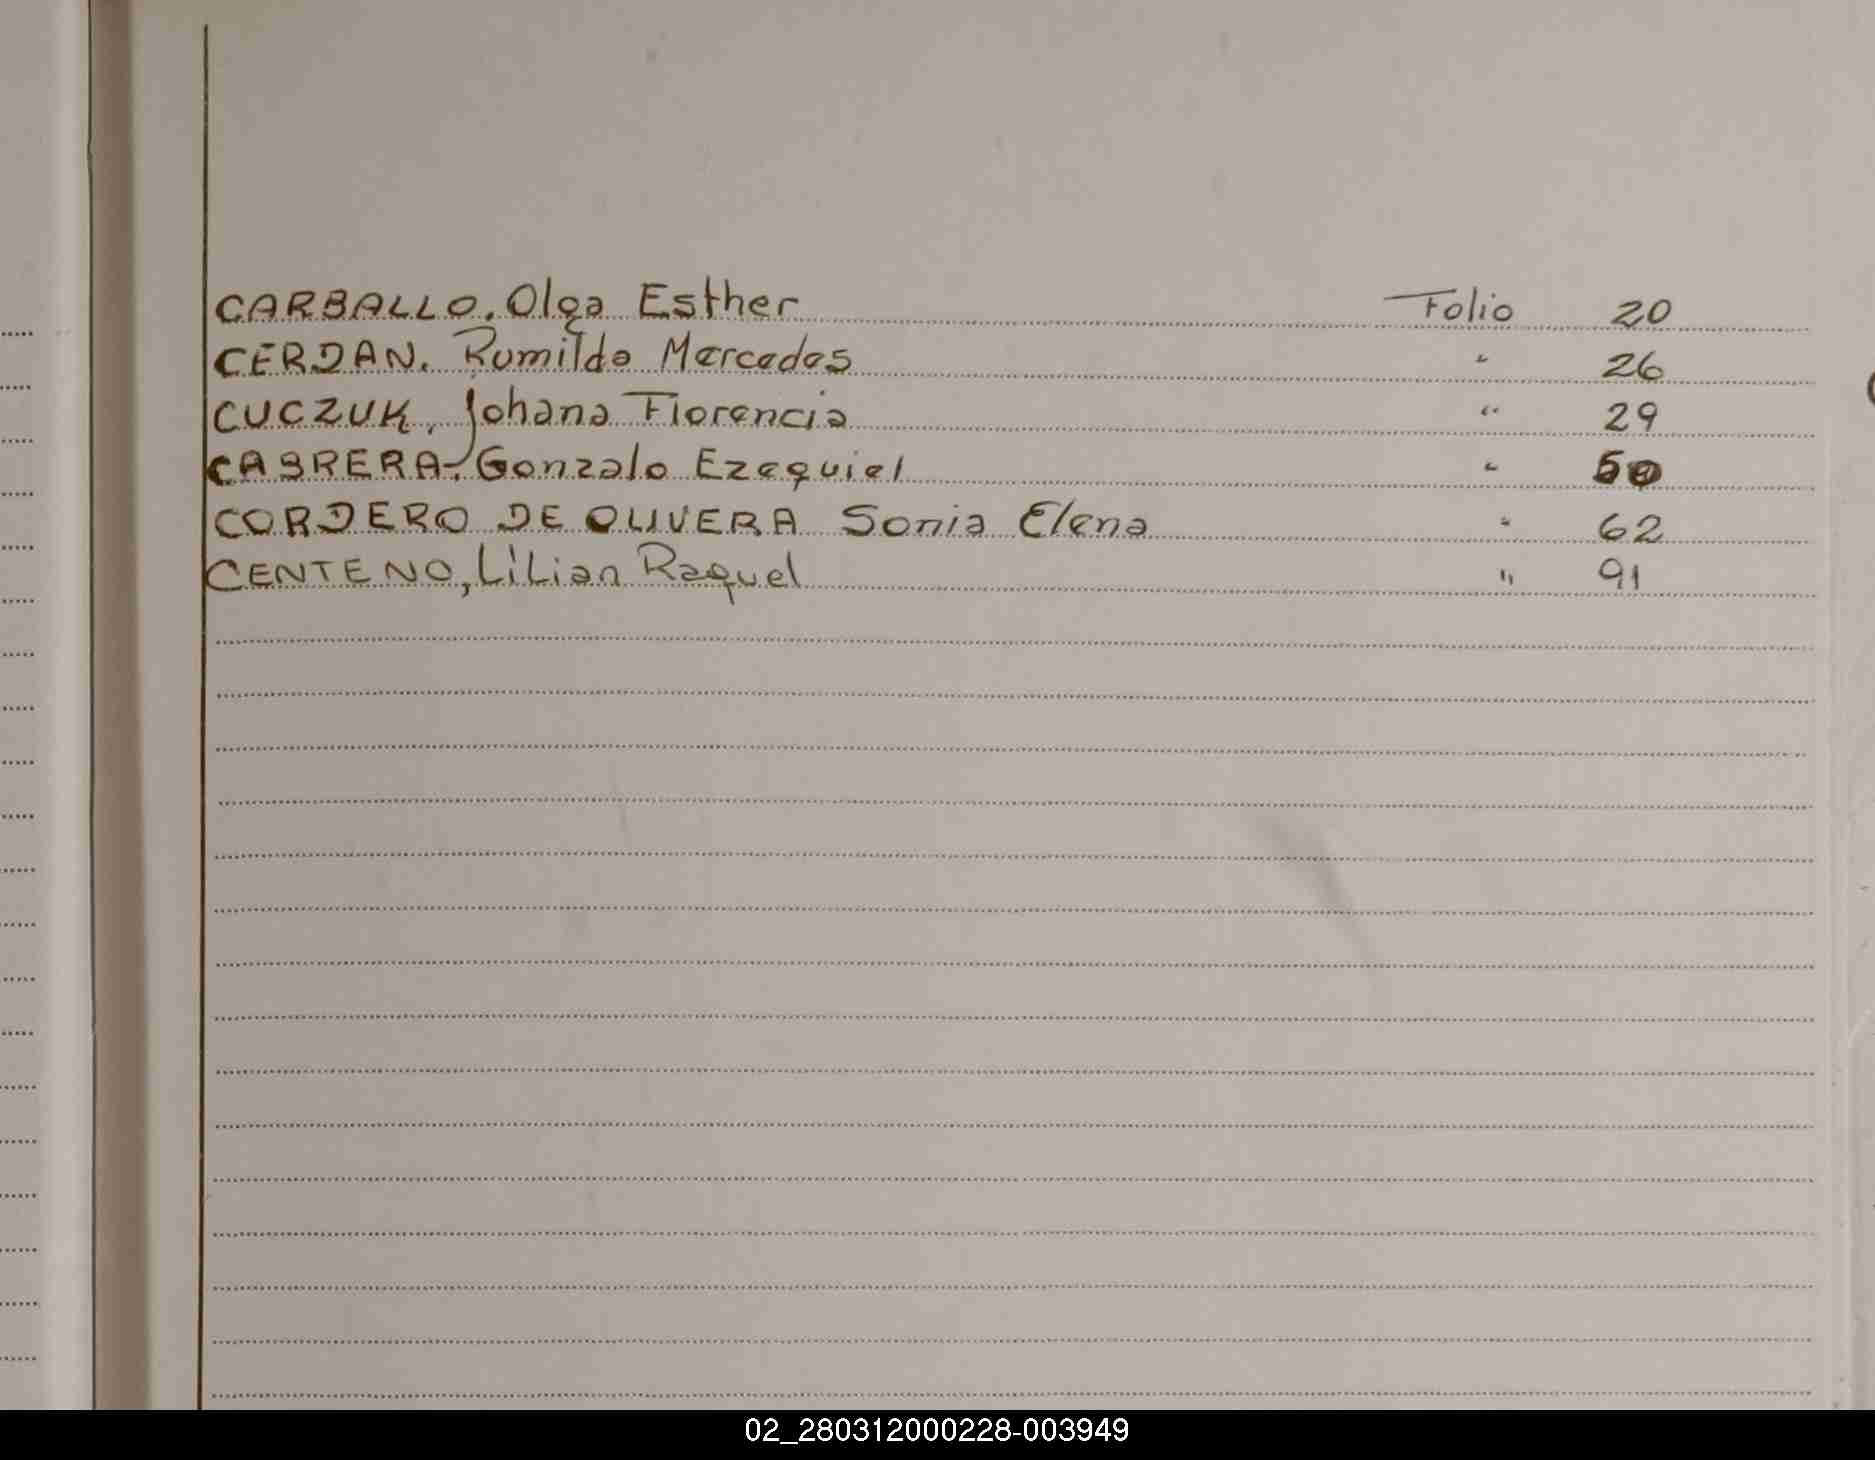 CARBALLO, Olga Esther Folio 20
CERDAN, Rumilda Mercedes " 26
CUCZUK, Johana Florencia " 29
CABRERA, Gonzalo Ezequiel " 50
CORDERO DE OLIVERA Sonia Elena " 62
CENTENO, Lilian Raquel " 91
02_280312000228-003949